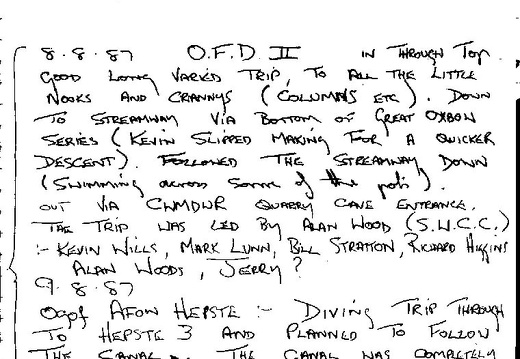 8.8.87 O.F.D II IN THROUGH TOP
GOOD LONG VARIED TRIP, TO ALL THE LITTLE
NOOKS AND CRANNYS (COLUMNS ETC). DOWN
TO STREAMWAY VIA BOTTOM OF GREAT OXBOW
SERIES (KEVIN SLIPPED MAKING FOR A QUICKER
DESCENT). FOLLOWED THE STREAMWAY DOWN
(Swimming across some of the pots).
OUT VIA CWMDWR QUARRY CAVE ENTRANCE.
THE TRIP WAS LED BY ALAN WOOD (S.W.C.C.)
:- KEVIN WILLS, MARK LUNN, BILL STRATTON, RICHARD HIGGINS
ALAN WOODS, JERRY?
9.8.87
Ogof AFON HEPSTE :- DIVING TRIP THROUGH
TO HEPSTE 3 AND PLANNED TO FOLLOW
THE CANAL. THE CANAL WAS COMPLETELY